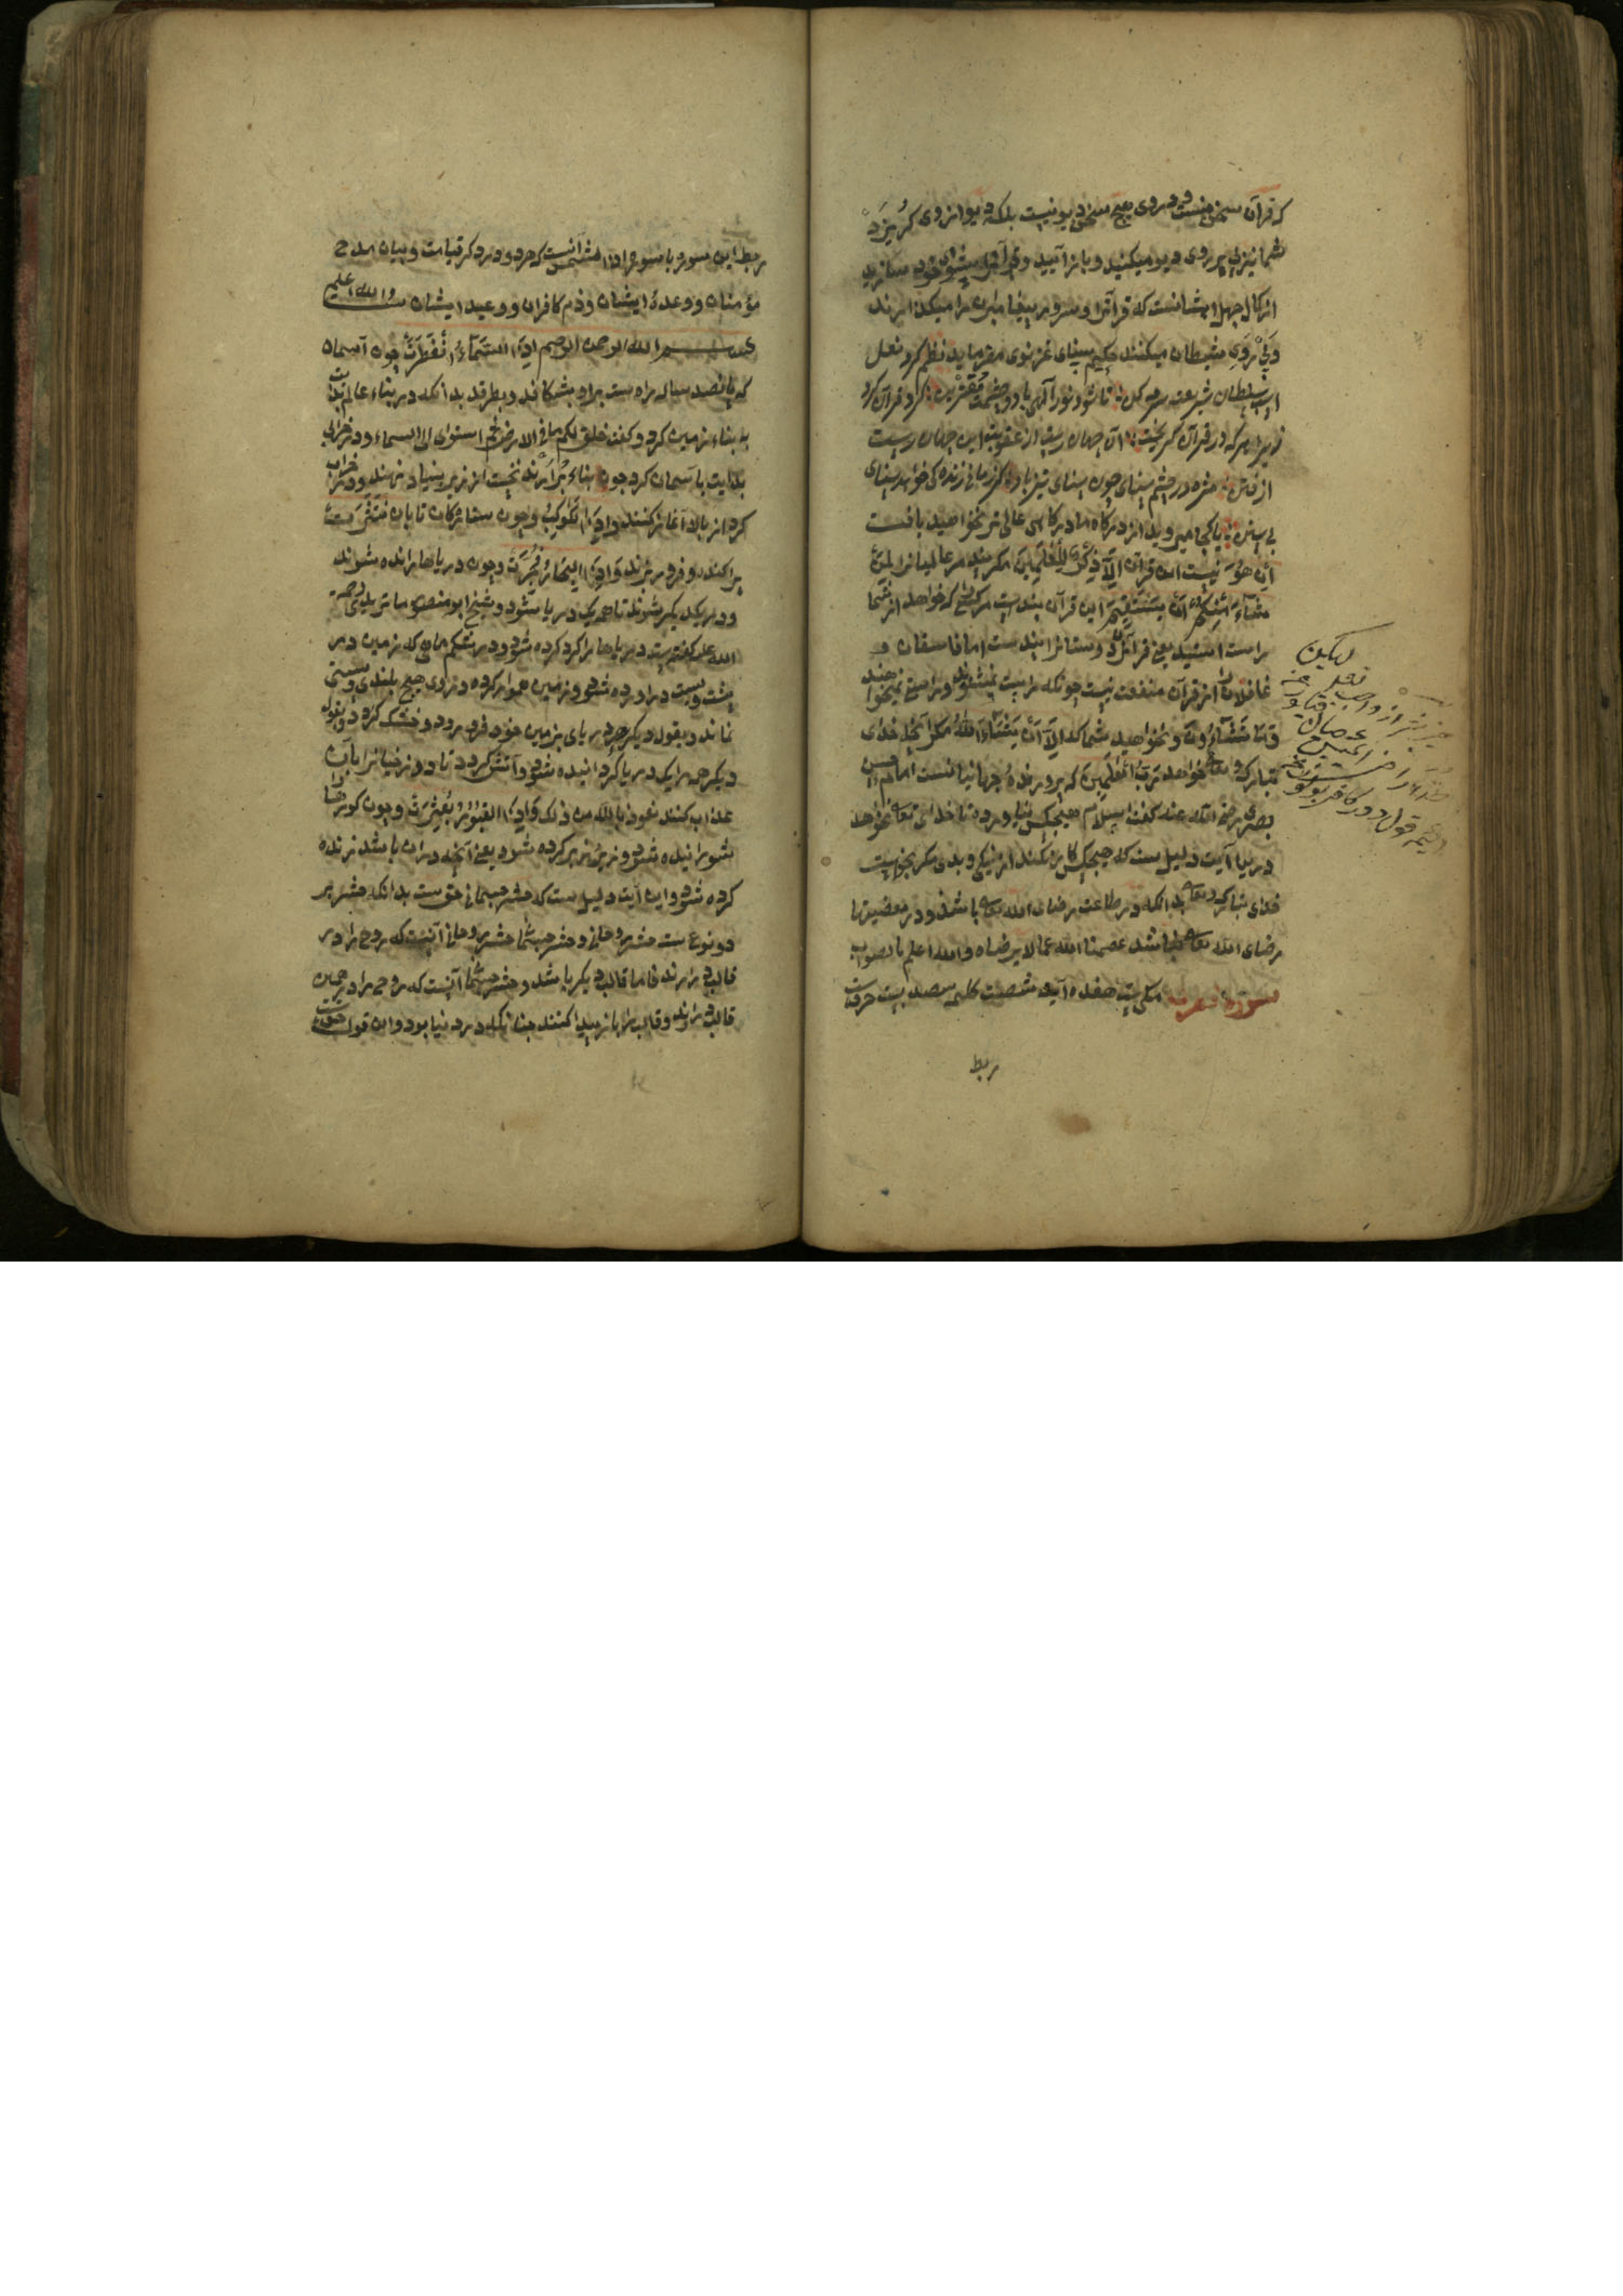 که قرآن سخن منست و در وی هیچ سخن دیو نیست بلکه دیو از وی گریزد
شما نیز پی روی دیو میکنید و باز آیید و قرآن پیشوای خود سازید
از کمال جهل ایشانست که قرآن و سرور پیغامبران را میکذارند
و پی روی شیطان میکنند حکیم سنای غزنوی میفرماید نظم کرد نعل
اسب سلطان شریعت سرمه کن تا شود نور الهی با دو چشمت مقترن کرد قرآن کرد
زیرا هر که در قرآن کریخت آن جهان رست از عقوبت این جهان رست
از فتن مژه در چشم سنای چون سنای تیز باد کر زمانی زندگی خواهد سنای
بی سنن یا کجا میروید از درگاه ما درگاهی عالی تر نخواهید یافت
ان هو نیست این قرآن الا ذکر للعلمین مکر پند مر عالمیانرا لمن
شاء منکم ان یستقیم این قرآن پندست مر کسی که خواهد از شما
راست ایستد یعنی قرآن دوستانرا پندست اما فاسقان و
غافلان از قرآن منفعت نیست چونکه راست نمیشوند و راستی نمیخواهند
وما تشاءون و نخواهید شما که الا ان یشاء الله مکر آنچه خدای
تبارک و تعالی خواهد رب العلمین که پرورنده جهانیانست امام حسن
بصری رضی الله عنه گفت اسلام هیچکس نیاورده تا خدای تعالی نخواهد
درین آیت دلیل ست که هیچکس کار نکند از نیکی و بدی مکر بخواست
خدای تبارک و تعالی بدانکه در طاعت رضای الله تعالی باشد و در معصیتها
رضای الله تعالی نباشد عصمنا الله عما لا یرضاه والله اعلم بالصواب
سورة انفطرت مکی ست هفده آیت شصت کلمه سیصد بیست حرفست
ربط
لیکن
ربط این سوره با سوره اذا الشمس آنست که هر دو در ذکر قیامت و بیان مدح
مؤمنان و وعدۀ ایشان و ذم کافران و وعید ایشان والله اعلم
بسم الله الرحمن الرحیم اذا السماء انفطرت چون آسمان
که پانصد ساله راه ست براو بشکافد و بطرقد بدانکه در بناء عالم بدایت
به بناء زمین کرد و گفت خلق لکم ما فی الارض ثم استوی الی السماء و در خرابی
بدایت بآسمان کرد چون بناء برآرند نخست از زیر بنیاد نهند و در خراب
کرد از بالا آغاز کنند واذا الکواکب و چون ستارگان تابان انتثرت
پراکنده و فرو ریزند واذا البحار فجرت و چون دریاها رانده شوند
و در یکدیگر شوند تا همه یک دریا شود و شیخ ابو منصور ماتریدی رحمة
الله علیه گفته ست دریاها را گرد کرده شود و در شکم ماهی که زمین در
پشت ویست در آورده شود و زمین هموار کرده و در وی هیچ بلندی و پستی
نماند و بقول دیگر هر دریای بزمین خود فرو رود و خشک گردد و بقول
دیگر همه را یک دریا گردانیده شود و آتش گردد تا دوزخیانرا بآن
عذاب کنند نعوذ بالله من ذلک واذا القبور بعثرت و چون گورها را
شورانیده شود و زیر زبر کرده شود یعنی آنچه در آن باشد زنده
کرده شود و این آیت دلیل ست که حشر جسمانی حق ست بدانکه حشر بر
دو نوع ست حشر روحانی و حشر جسمانی حشر روحانی آنست که روح را در
قالب در آرند فاما قالب دیگر باشد و حشر جسمانی آنست که روح را در همین
قالب در آرند و قالب را باز پیدا کنند چنانکه در دنیا بود و این قول حق ست